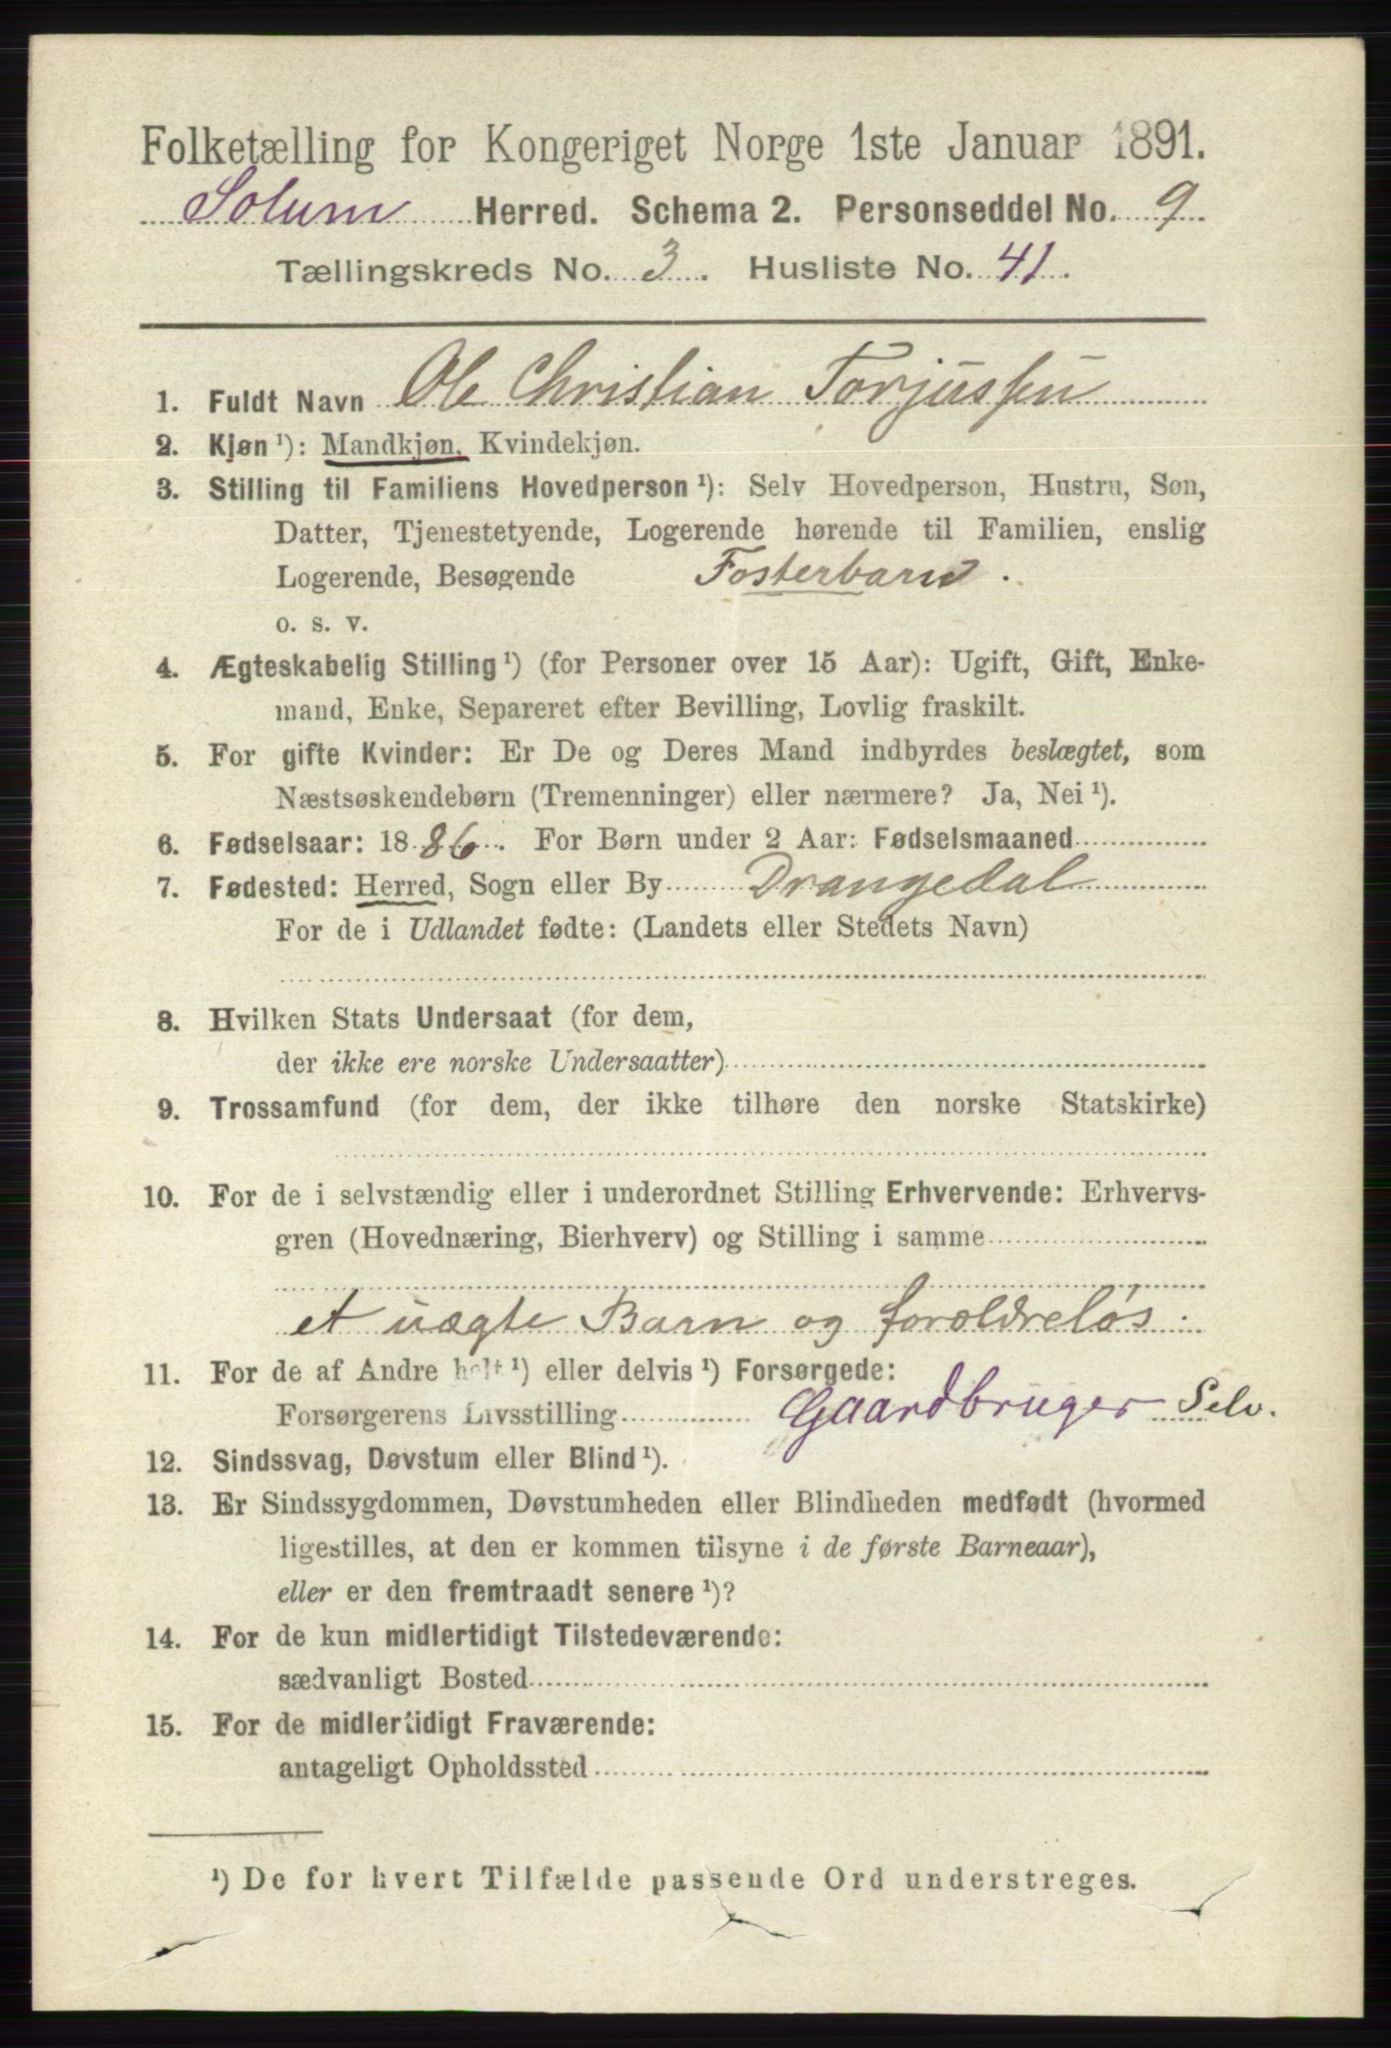 Folketælling for Kongeriget Norge 1ste Januar 1891.
Solum Herred. Schema 2. Personseddel No. 9
Tællingskreds No. 3. Husliste No. 41.
1. Fuldt Navn Ole Christian Torjussen
2. Kjøn ¹): Mandkjøn, Kvindekjøn.
3. Stilling til Familiens Hovedperson ¹): Selv Hovedperson, Hustru, Søn,
Datter, Tjenestetyende, Logerende hørende til Familien, enslig
Logerende, Besøgende Fosterbarn.
o. s. v.
4. Ægteskabelig Stilling ¹) (for Personer over 15 Aar): Ugift, Gift, Enke-
mand, Enke, Separeret efter Bevilling, Lovlig fraskilt.
5. For gifte Kvinder: Er De og Deres Mand indbyrdes beslægtet, som
Næstsøskendebørn (Tremenninger) eller nærmere? Ja, Nei ¹).
6. Fødselsaar: 1886. For Børn under 2 Aar: Fødselsmaaned
7. Fødested: Herred, Sogn eller By Drangedal
For de i Udlandet fødte: (Landets eller Stedets Navn)
8. Hvilken Stats Undersaat (for dem,
der ikke ere norske Undersaatter)
9. Trossamfund (for dem, der ikke tilhøre den norske Statskirke)
10. For de i selvstændig eller i underordnet Stilling Erhvervende: Erhvervs-
gren (Hovednæring, Bierhverv) og Stilling i samme
et uægte Barn og forældreløs.
11. For de af Andre helt ¹) eller delvis ¹) Forsørgede:
Forsørgerens Livsstilling Gaardbruger Selv.
12. Sindssvag, Døvstum eller Blind ¹).
13. Er Sindssygdommen, Døvstumheden eller Blindheden medfødt (hvormed
ligestilles, at den er kommen tilsyne i de første Barneaar),
eller er den fremtraadt senere ¹)?
14. For de kun midlertidigt Tilstedeværende:
sædvanligt Bosted
15. For de midlertidigt Fraværende:
antageligt Opholdssted
¹) De for hvert Tilfælde passende Ord understreges.